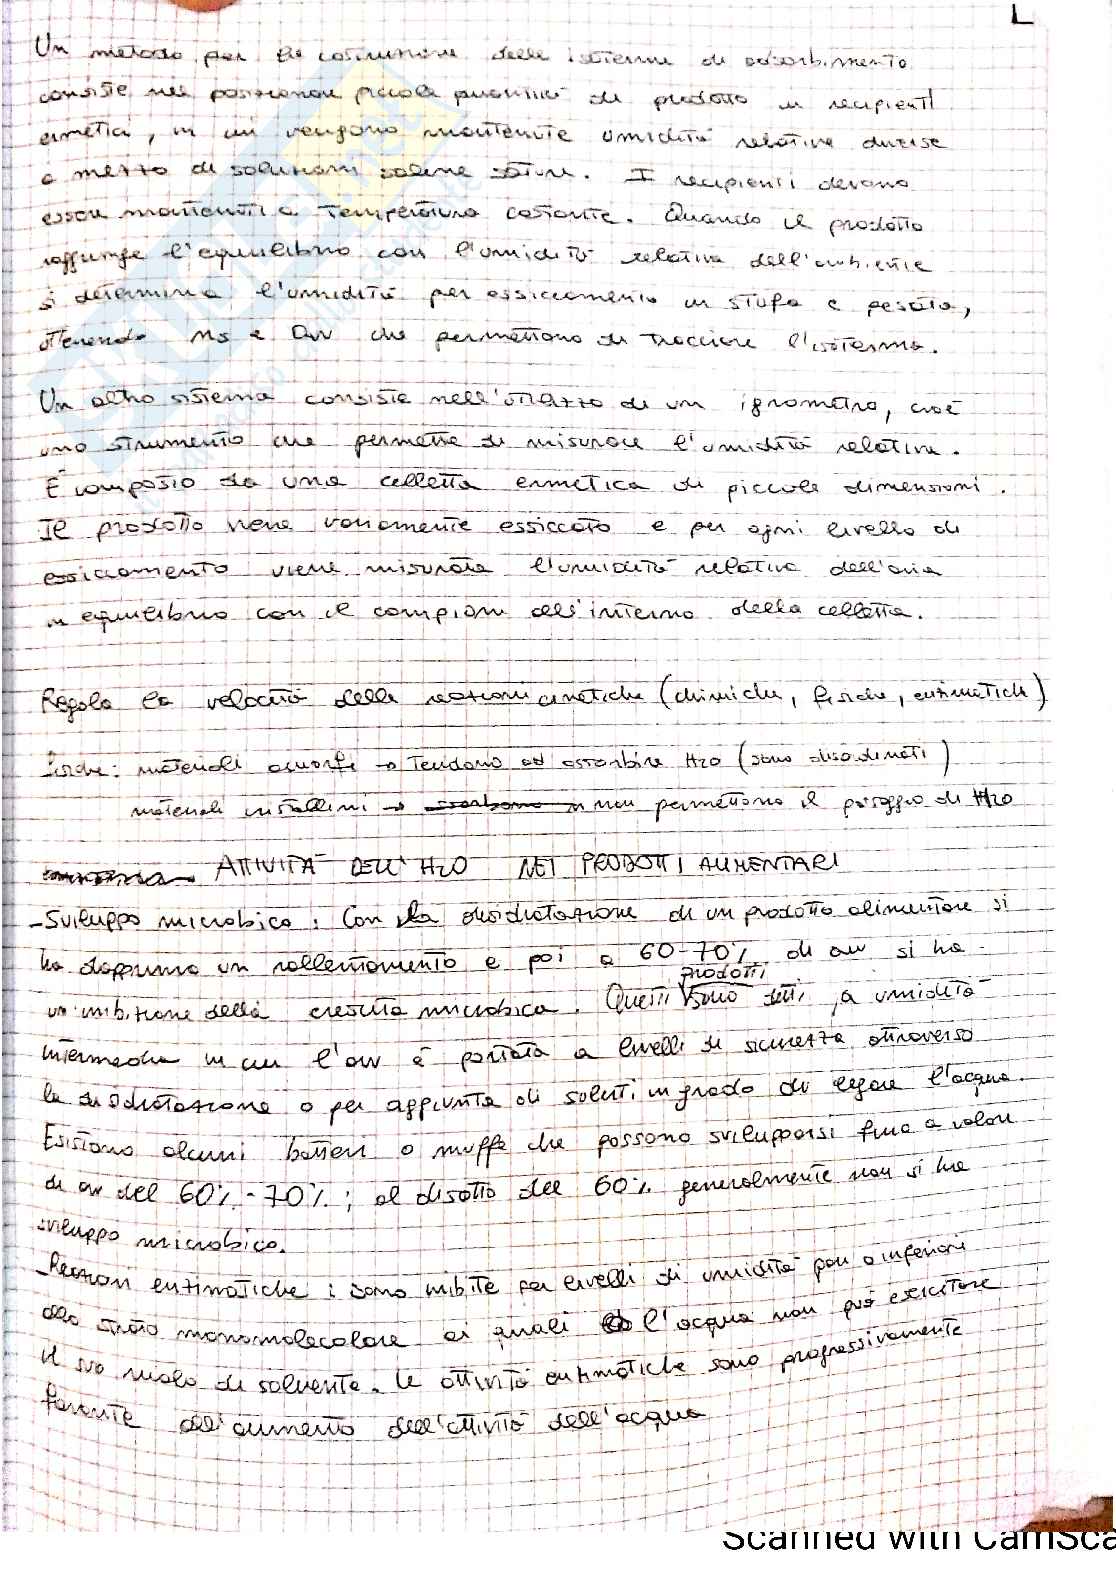 L
Un metodo per la costruzione delle isoterme di adsorbimento
consiste nel posizionare piccole quantità di prodotto in recipienti
ermetici, in cui vengono mantenute umidità relative diverse
a mezzo di soluzioni saline sature. I recipienti devono
essere mantenuti a temperatura costante. Quando il prodotto
raggiunge l'equilibrio con l'umidità relativa dell'ambiente
si determina l'umidità per essiccamento in stufa e pesata,
ottenendo Ms e aw che permettono di tracciare l'isoterma.
Un altro sistema consiste nell'utilizzo di un igrometro, cioè
uno strumento che permette di misurare l'umidità relativa.
È composto da una celletta ermetica di piccole dimensioni.
Il prodotto viene variamente essiccato e per ogni livello di
essiccamento viene misurata l'umidità relativa dell'aria
in equilibrio con il campione all'interno della celletta.
Regola la velocità delle reazioni cinetiche (chimiche, fisiche, enzimatiche)
Fisiche: materiali amorfi → tendono ad assorbire H2O (sono disordinati)
materiali cristallini → non permettono il passaggio di H2O
ATTIVITÀ DELL'H2O NEI PRODOTTI ALIMENTARI
- Sviluppo microbico: Con la disidratazione di un prodotto alimentare si
ha dapprima un rallentamento e poi a 60-70% di aw si ha
un'inibizione della crescita microbica. Questi prodotti sono detti a umidità
intermedia in cui l'aw è portata a livelli di sicurezza attraverso
la disidratazione o per aggiunta di soluti in grado di legare l'acqua.
Esistono alcuni batteri o muffe che possono svilupparsi fino a valori
di aw del 60%-70%; al disotto del 60% generalmente non si ha
sviluppo microbico.
- Reazioni enzimatiche: sono inibite per livelli di umidità pari o inferiori
allo strato monomolecolare ai quali l'acqua non può esercitare
il suo ruolo di solvente. Le attività enzimatiche sono progressivamente
favorite dall'aumento dell'attività dell'acqua
Scanned with CamSca